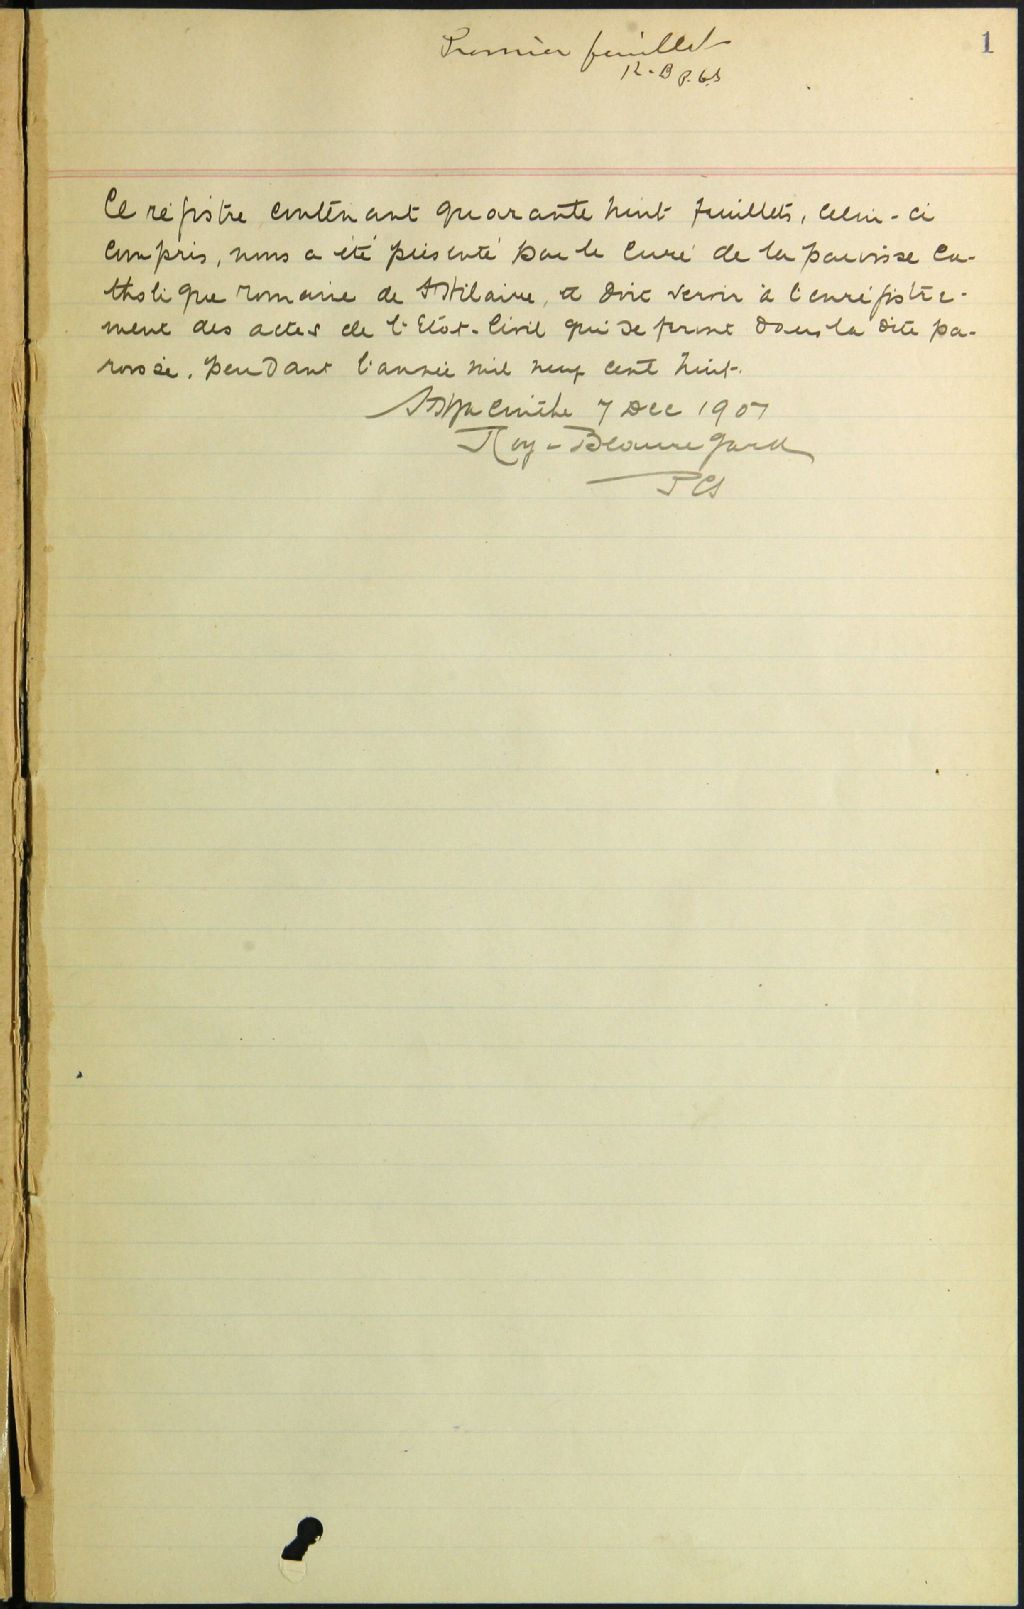 1
Premier feuillet
R.-B P.C.S
Ce régistre contenant quarante huit feuillets, celui-ci
compris, nous a été présenté par le curé de la paroisse Ca-
tholique romaine de St Hilaire, et doit servir à l'enrégistre-
ment des actes de l'Etat-Civil qui se feront dans la dite pa-
roisse, pendant l'année mil neuf cent huit.
St Hyacinthe 7 Dec 1907
Roy-Beauregard
PCS